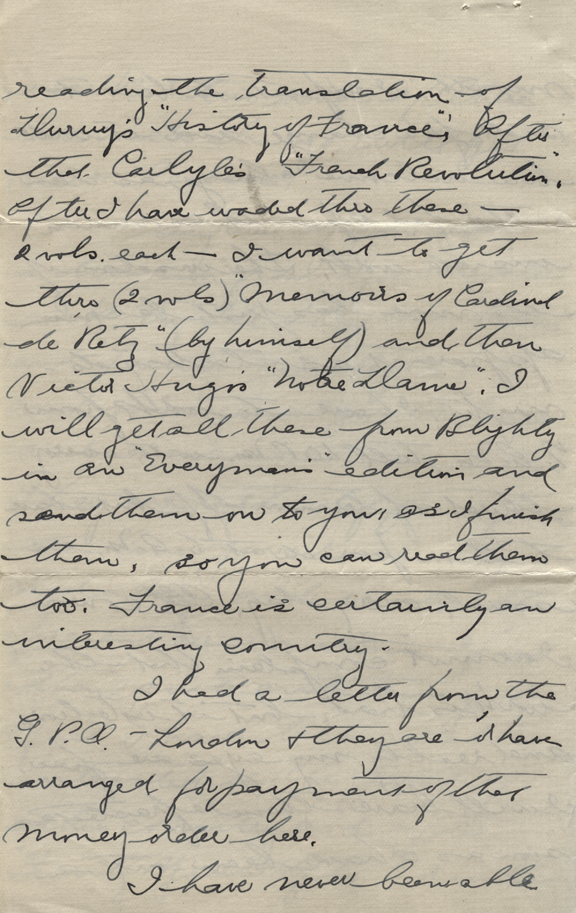 reading the translation of
Duruy's "History of France"; After
that Carlyle's "French Revolution".
After I have waded thro these —
2 vols. each — I want to get
thro (2 vols) "Memoirs of Cardinal
de Retz" (by himself) and then
Victor Hugo's "Notre Dame". I
will get all these from Blighty
in an "Everyman's" edition and
send them on to you, as I finish
them, so you can read them
too. France is certainly an
interesting country.
I had a letter from the
G.P.O. - London & they are or have
arranged for payment of that
money order here.
I have never been able